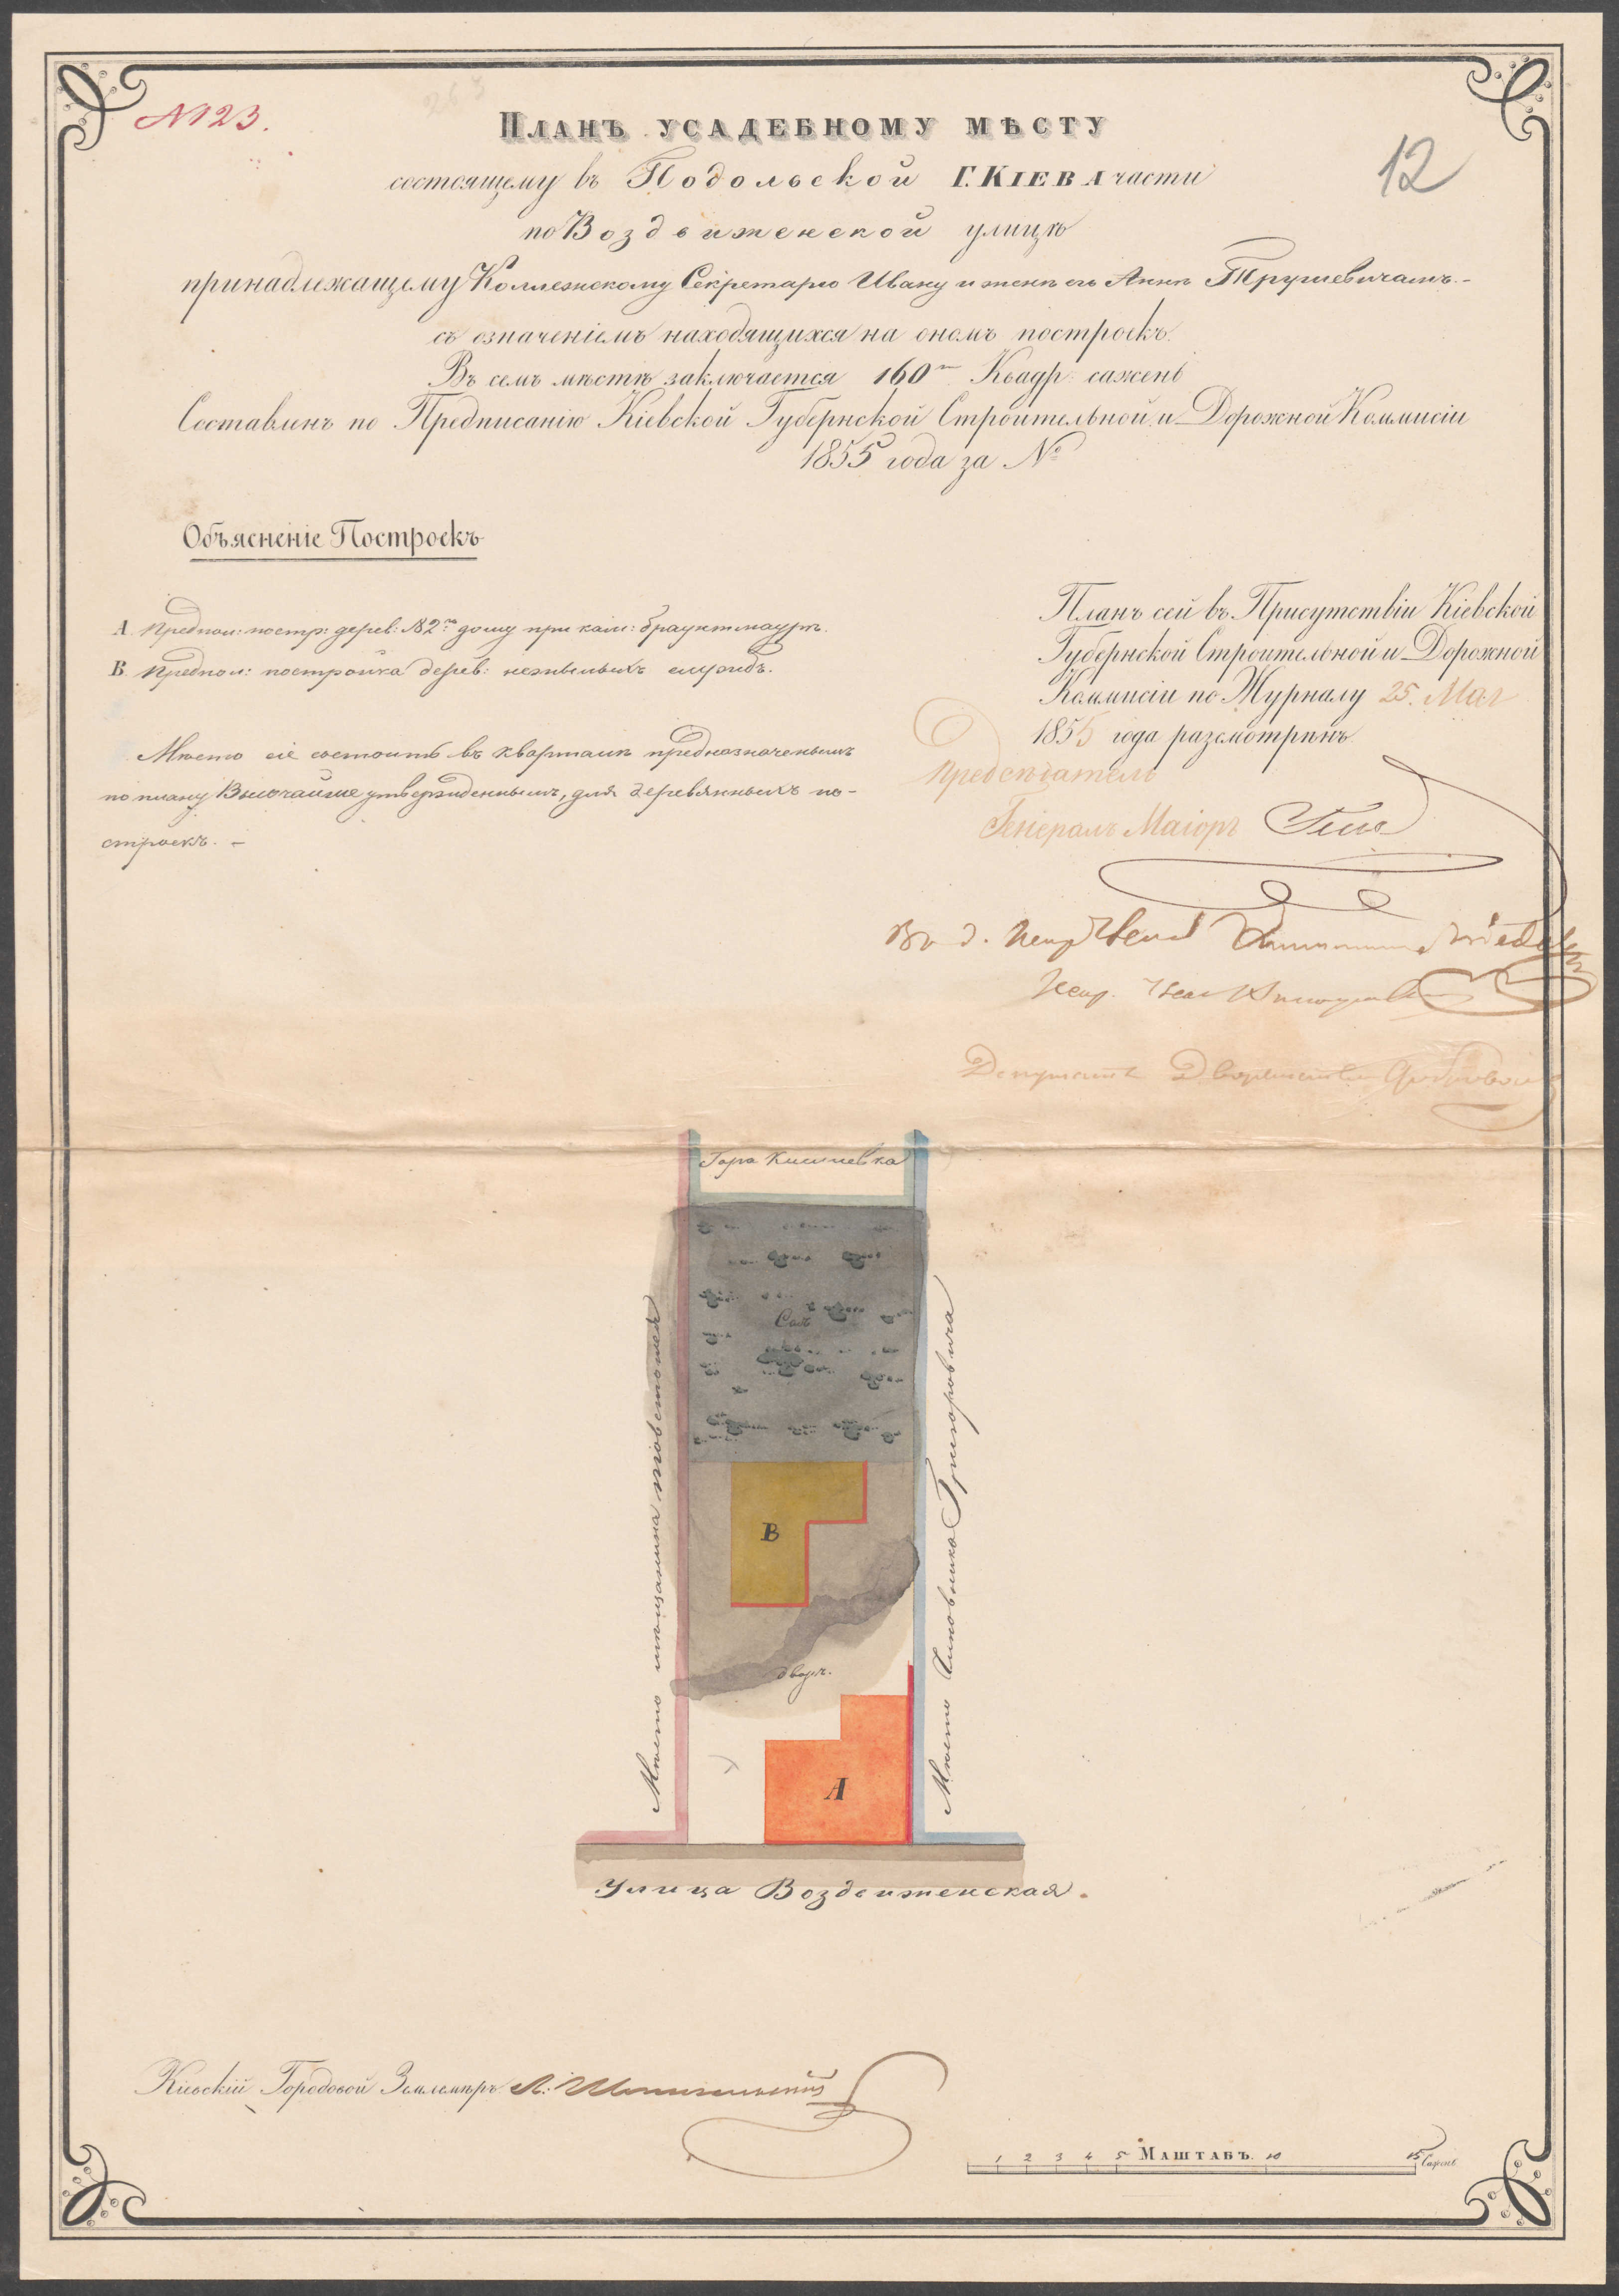 № 123.
263
12
Планъ усадебному мѣсту
состоящему въ Подольской Г. Кіева части
по Воздвиженской улицѣ
принадлежащему Коллежскому Секретарю Ивану и женѣ его Аннѣ Трушевичамъ.-
съ означеніемъ находящихся на ономъ построекъ.
Въ семъ мѣстѣ заключается 160ть Квадр: сажень
Составленъ по Предписанію Кіевской Губернской Строительной и Дорожной Коммисіи
1855 года за №
Объясненіе Построекъ
А. Предпол: постр: дерев: №2го дому при кам: брантмаурѣ.
В. Предпол: постройка дерев: нежилыхъ службъ.
Мѣсто сіе состоитъ въ кварталѣ предназначенымъ
по плану Высочайше утвержденнымъ, для деревянныхъ по-
строекъ. -
Планъ сей въ Присутствіи Кіевской
Губернской Строительной и Дорожной
Коммисіи по Журналу 25. Мая
1855 года разсмотрѣнъ.
Предсѣдатель
Генералъ Маіоръ
Депутатъ Дворянства
Гора Киселевка
Садъ
В
дворъ.
А
Мѣсто мѣщанина
Мѣсто Чиновника Григоровича
Улица Воздвиженская.
Кіевскій Городовой Землемѣръ Л.
1 2 3 4 5 Маштабъ. 10 15 Сажень